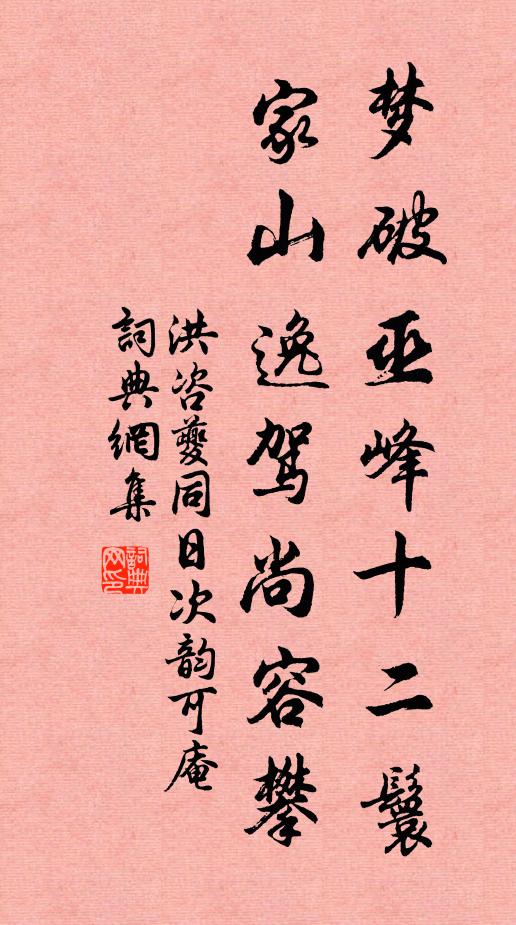 梦破巫峰十二鬟
家山逸驾尚容攀
洪咨夔同日次韵可庵
詞典網集
詞典網印